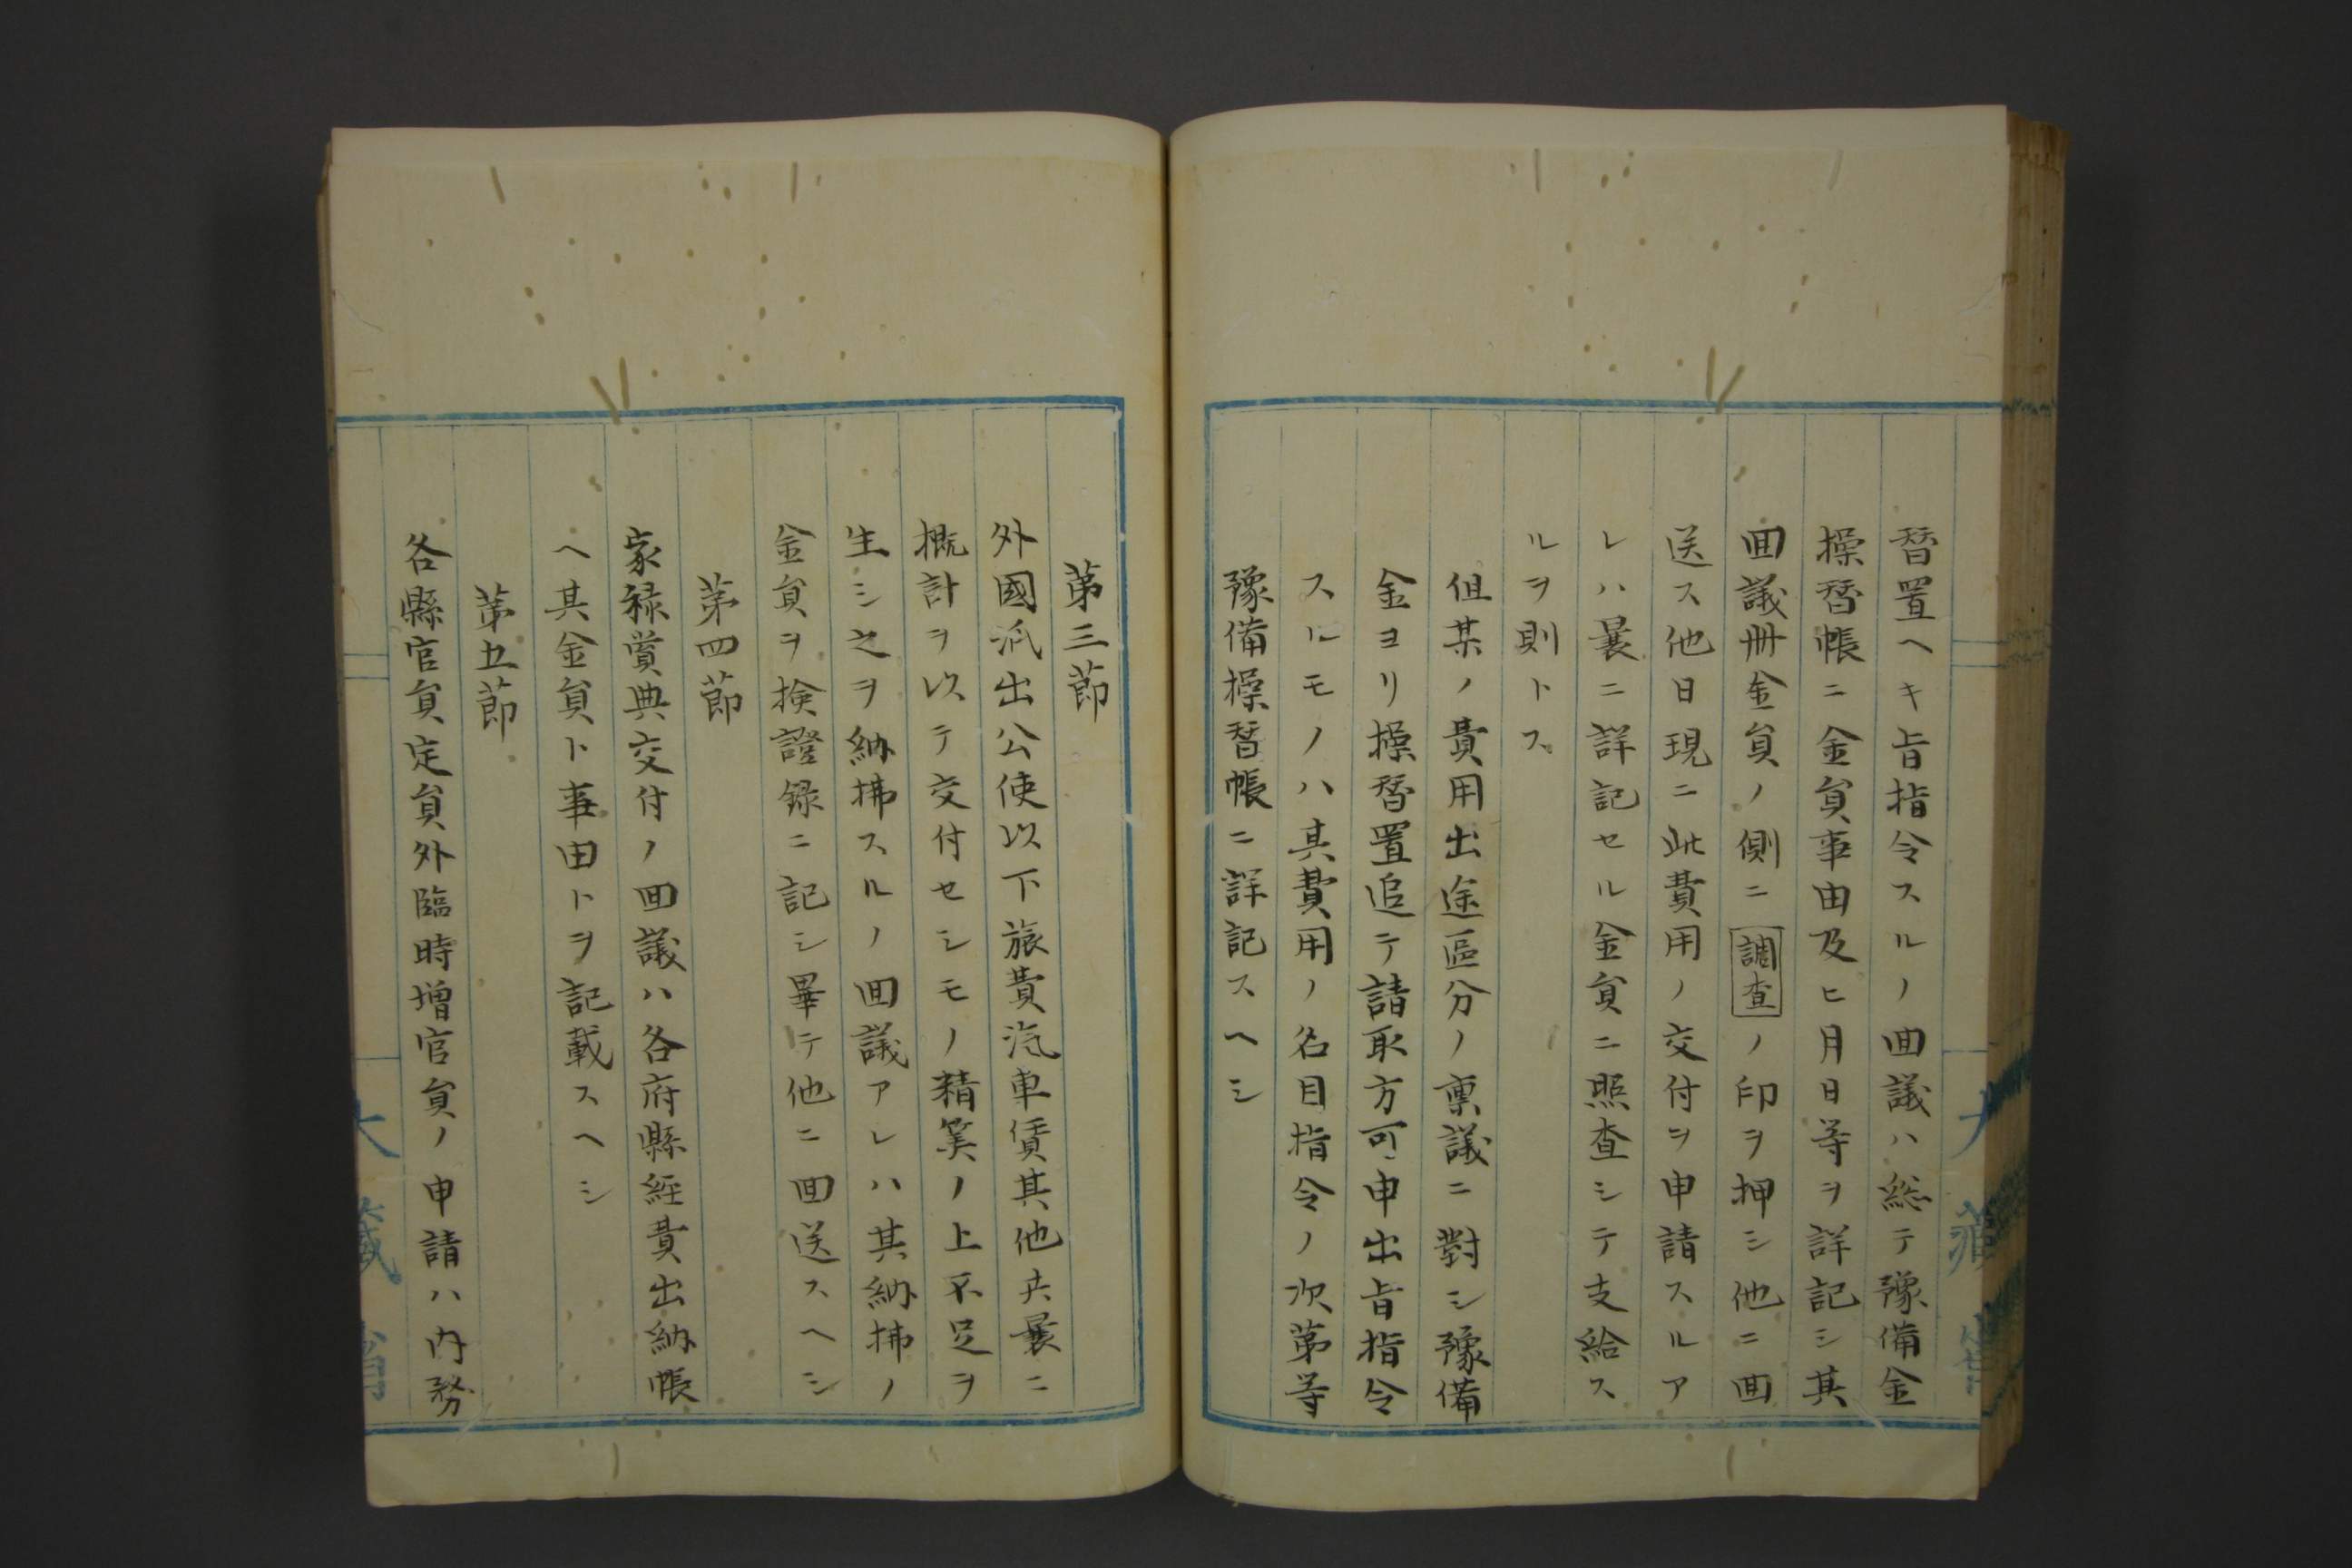 替置ヘキ旨指令スルノ囬議ハ総テ豫備金
操替帳ニ金貟事由及ヒ月日等ヲ詳記シ其
囬議冊金貟ノ側ニ調査ノ印ヲ押シ他ニ囬
送ス他日現ニ此費用ノ交付ヲ申請スルア
レハ曩ニ詳記セル金貟ニ照査シテ支給ス
ルヲ則トス
但某ノ費用出途區分ノ稟議ニ對シ豫備
金ヨリ操替置追テ請取方可申出旨指令
スルモノハ其費用ノ名目指令ノ次第等
豫備操替帳ニ詳記スヘシ
第三節
外國派出公使以下旅費汽車賃其他夫曩ニ
概計ヲ以テ交付セシモノ精筭ノ上不足ヲ
生シ之ヲ納拂スルノ囬議アレハ其納拂ノ
金貟ヲ検證録ニ記シ畢テ他ニ囬送スヘシ
第四節
家禄賞典交付ノ囬議ハ各府縣経費出納帳
ヘ其金貟ト事由トヲ記載スヘシ
第五節
各縣官貟定貟外臨時増官貟ノ申請ハ内務
大藏省